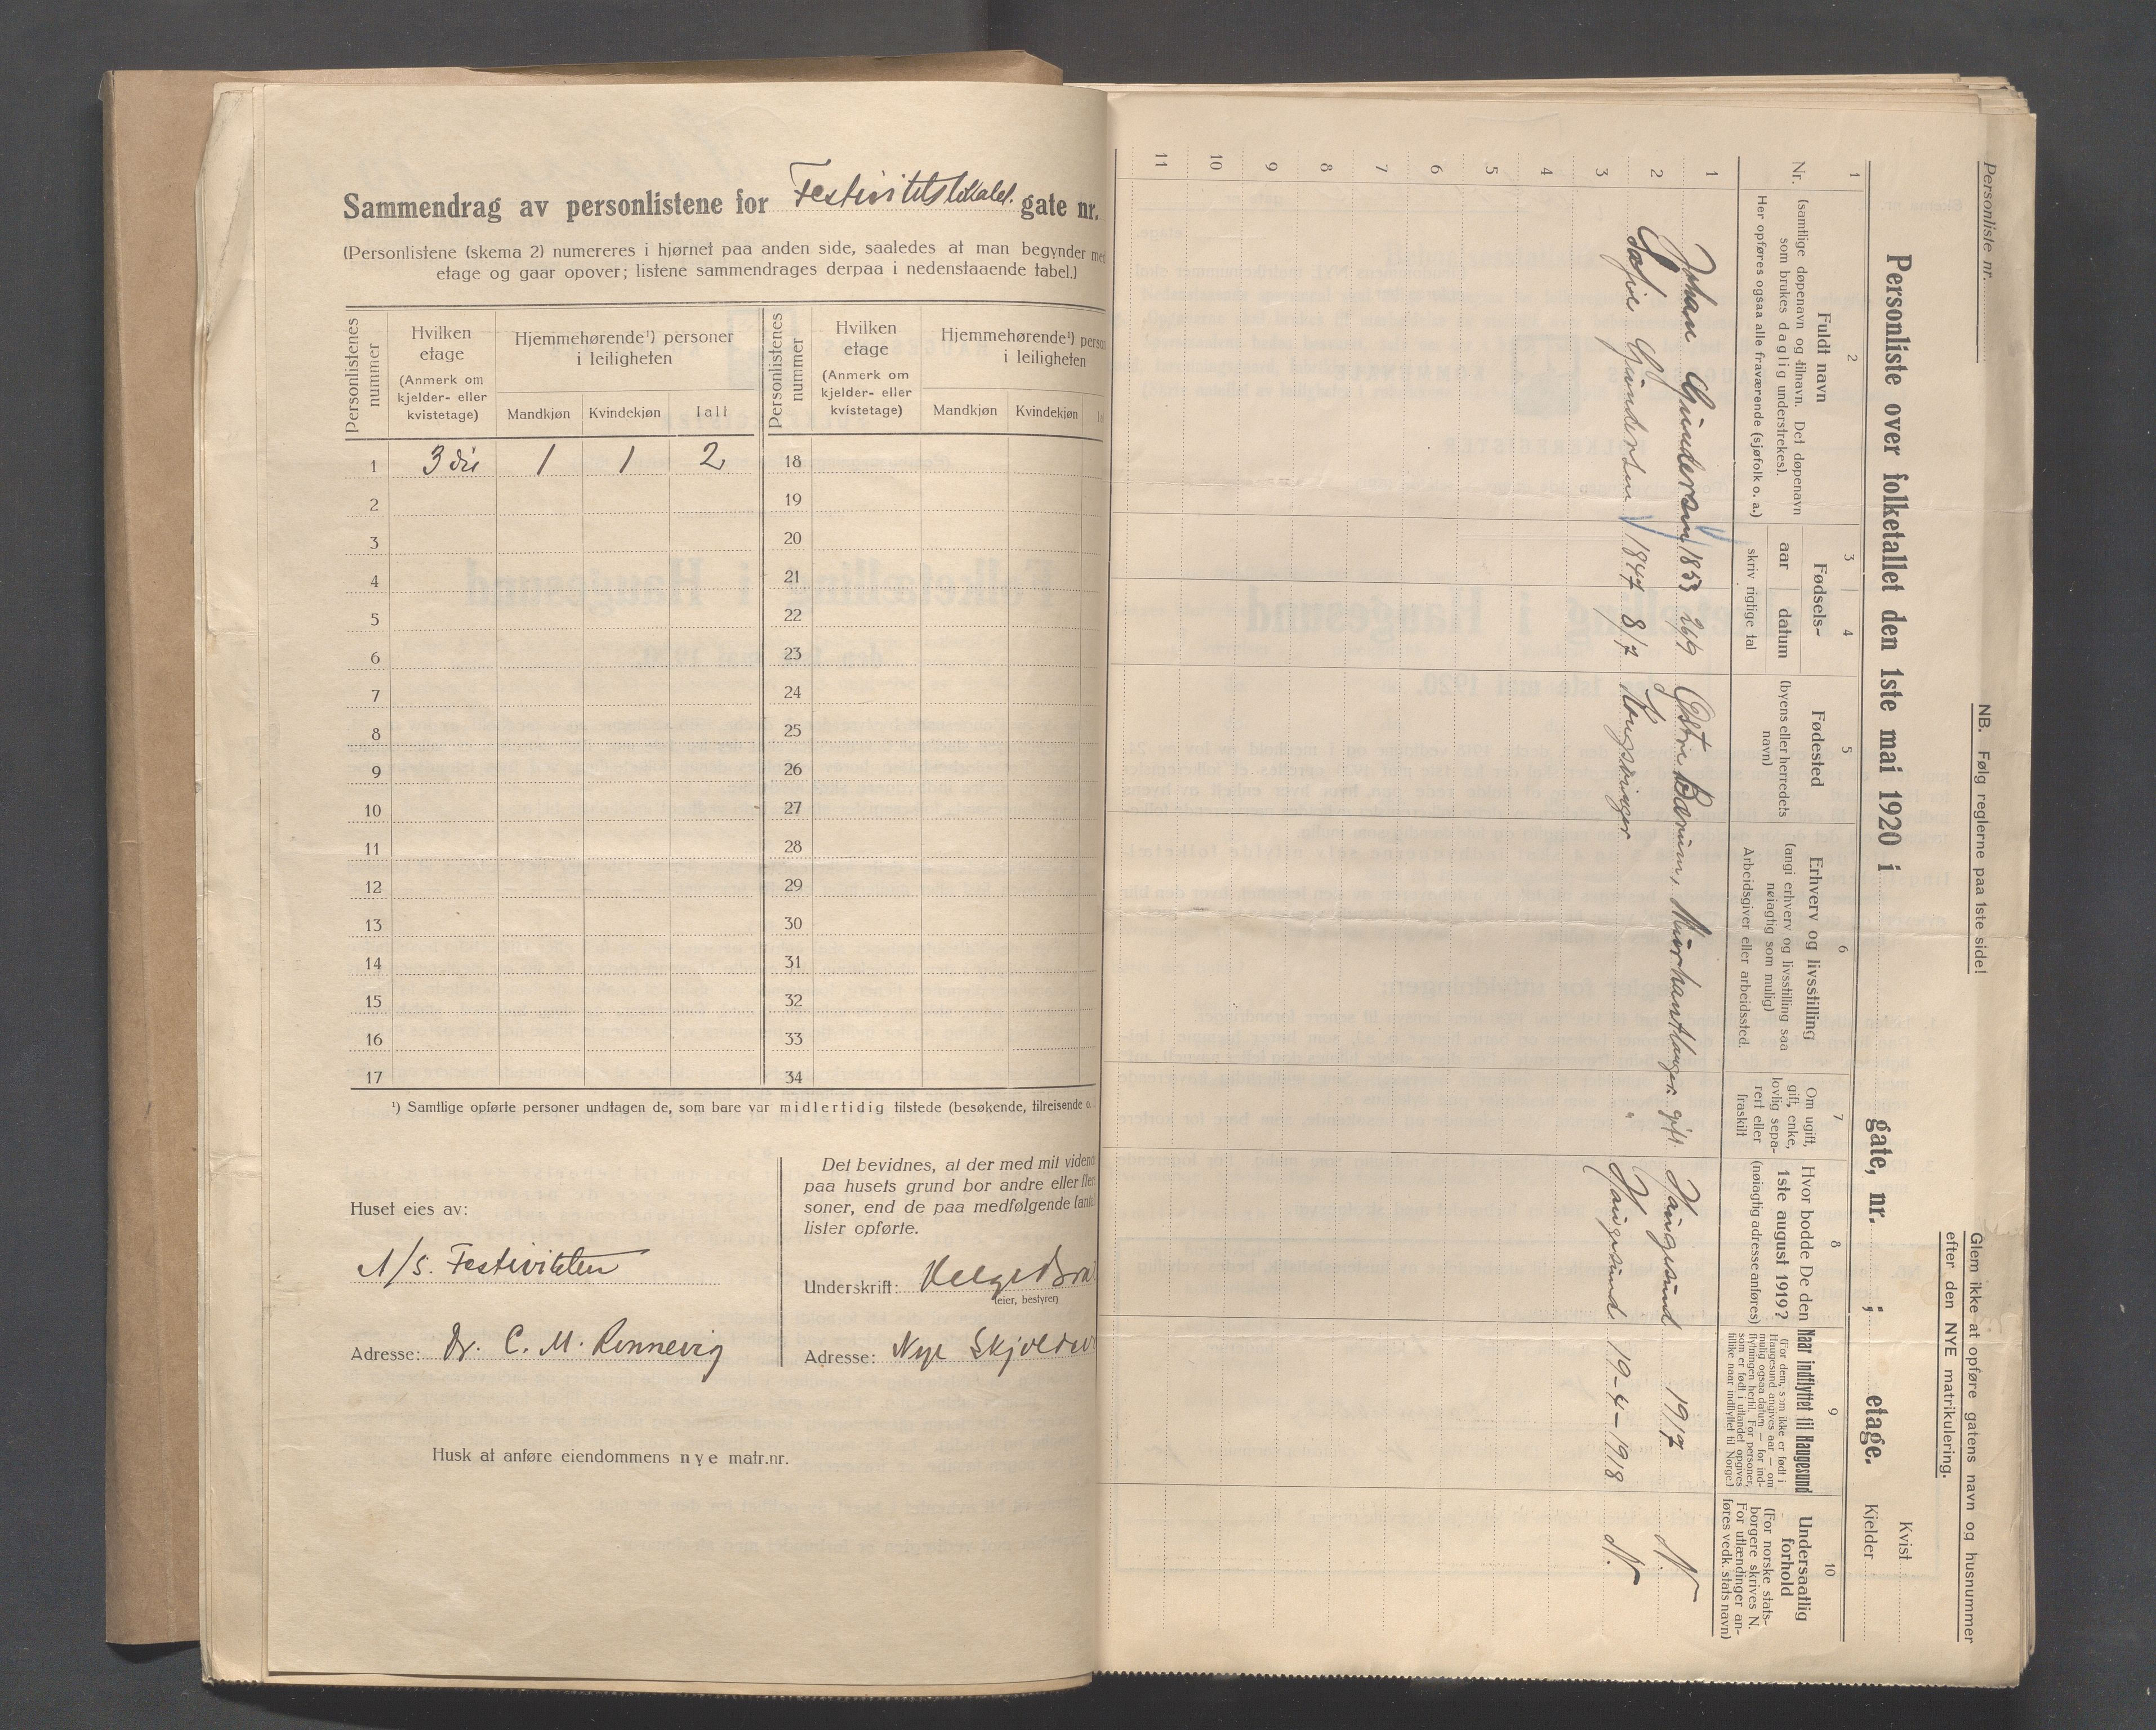 Sammendrag av personlistene for Festivitetslokalet. gate nr.
(Personlistene (skema 2) numereres i hjørnet paa anden side, saaledes at man begynder med
etage og gaar opover; listene sammendrages derpaa i nedenstaaende tabel.)
Personlistenes nummer
Hvilken etage
(Anmerk om kjelder- eller kvistetage)
Hjemmehørende¹) personer i leiligheten
Mandkjøn Kvindekjøn I alt
Personlistenes nummer
Hvilken etage
(Anmerk om kjelder- eller kvistetage)
Hjemmehørende¹) person
i leiligheten
Mandkjøn Kvindekjøn
1 3die 1 1 2 18
2 19
3 20
4 21
5 22
6 23
7 24
8 25
9 26
10 27
11 28
12 29
13 30
14 31
15 32
16 33
17 34
¹) Samtlige opførte personer undtagen de, som bare var midlertidig tilstede (besøkende, tilreisende o.
Huset eies av:
A/S. Festiviteten
Adresse: Dr. C. M. Rønnevig
Det bevidnes, at der med mit vidende
paa husets grund bor andre eller flere
soner, end de paa medfølgende (antal
lister opførte.
Underskrift: Helge
(eier, bestyrer)
Adresse: Nye Skjoldav
Husk at anføre eiendommens nye matr.nr.
Personliste nr.
NB. Følg reglerne paa 1ste side!
Glem ikke at opføre gatens navn og husnummer
efter den NYE matrikulering.
Personliste over folketallet den 1ste mai 1920 i gate, nr. ; etage.
Kvist
Kjelder
1 2 3 4 5 6 7 8 9 10
Nr.
Fuldt navn
(samtlige døpenavn og tilnavn. Det døpenavn
som brukes daglig understrekes).
Her opføres ogsaa alle fraværende (sjøfolk o. a.)
Fødsels-
aar datum
skriv rigtige tal
Fødested
(byens eller herredets
navn)
Erhverv og livsstilling
(angi erhverv og livsstilling saa
nøiagtig som mulig)
Arbeidsgiver eller arbeidssted.
Om ugift,
gift, enke,
lovlig sepa-
rert eller
fraskilt
Hvor bodde De den
1ste august 1919?
(nøiagtig adresse anføres)
Naar indflyttet til Haugesund
(For dem, som ikke er født i
Haugesund angives aar — om
mulig ogsaa datum — for ind-
flytningen hertil. For personer,
som er født i utlandet opgives
tillike naar indflyttet til Norge.)
Undersaatlig
forhold
(For norske stats-
borgere skrives N.
For utlændinger an-
føres vedk. stats navn)
1 Johan Gundersen 1853 26/9 Østre Bærum, gift. Haugesund 1917 N.
2 Sofie Gundersen 1847 8/7 Kongsvinger " Haugesund 19-4-1918 N.
3
4
5
6
7
8
9
10
11